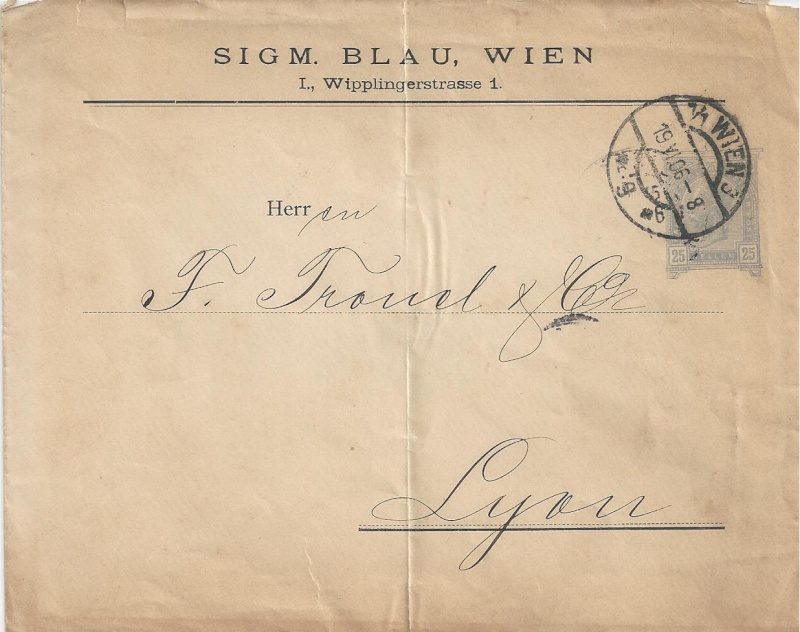 SIGM. BLAU, WIEN
I., Wipplingerstrasse 1.
1/1 WIEN 3
19 VI 06 - 8
25 HELLER 25
Herren
F. Troucl & Co
Lyon